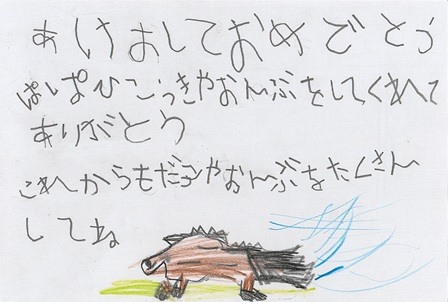 あけましておめでとう
ぱぱひこうきやおんぶをしてくれて
ありがとう
これからもだっこやおんぶをたくさん
してね